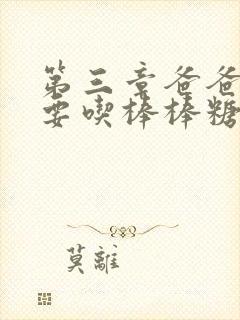 第三章爸爸
要喫棒棒糖
莫離